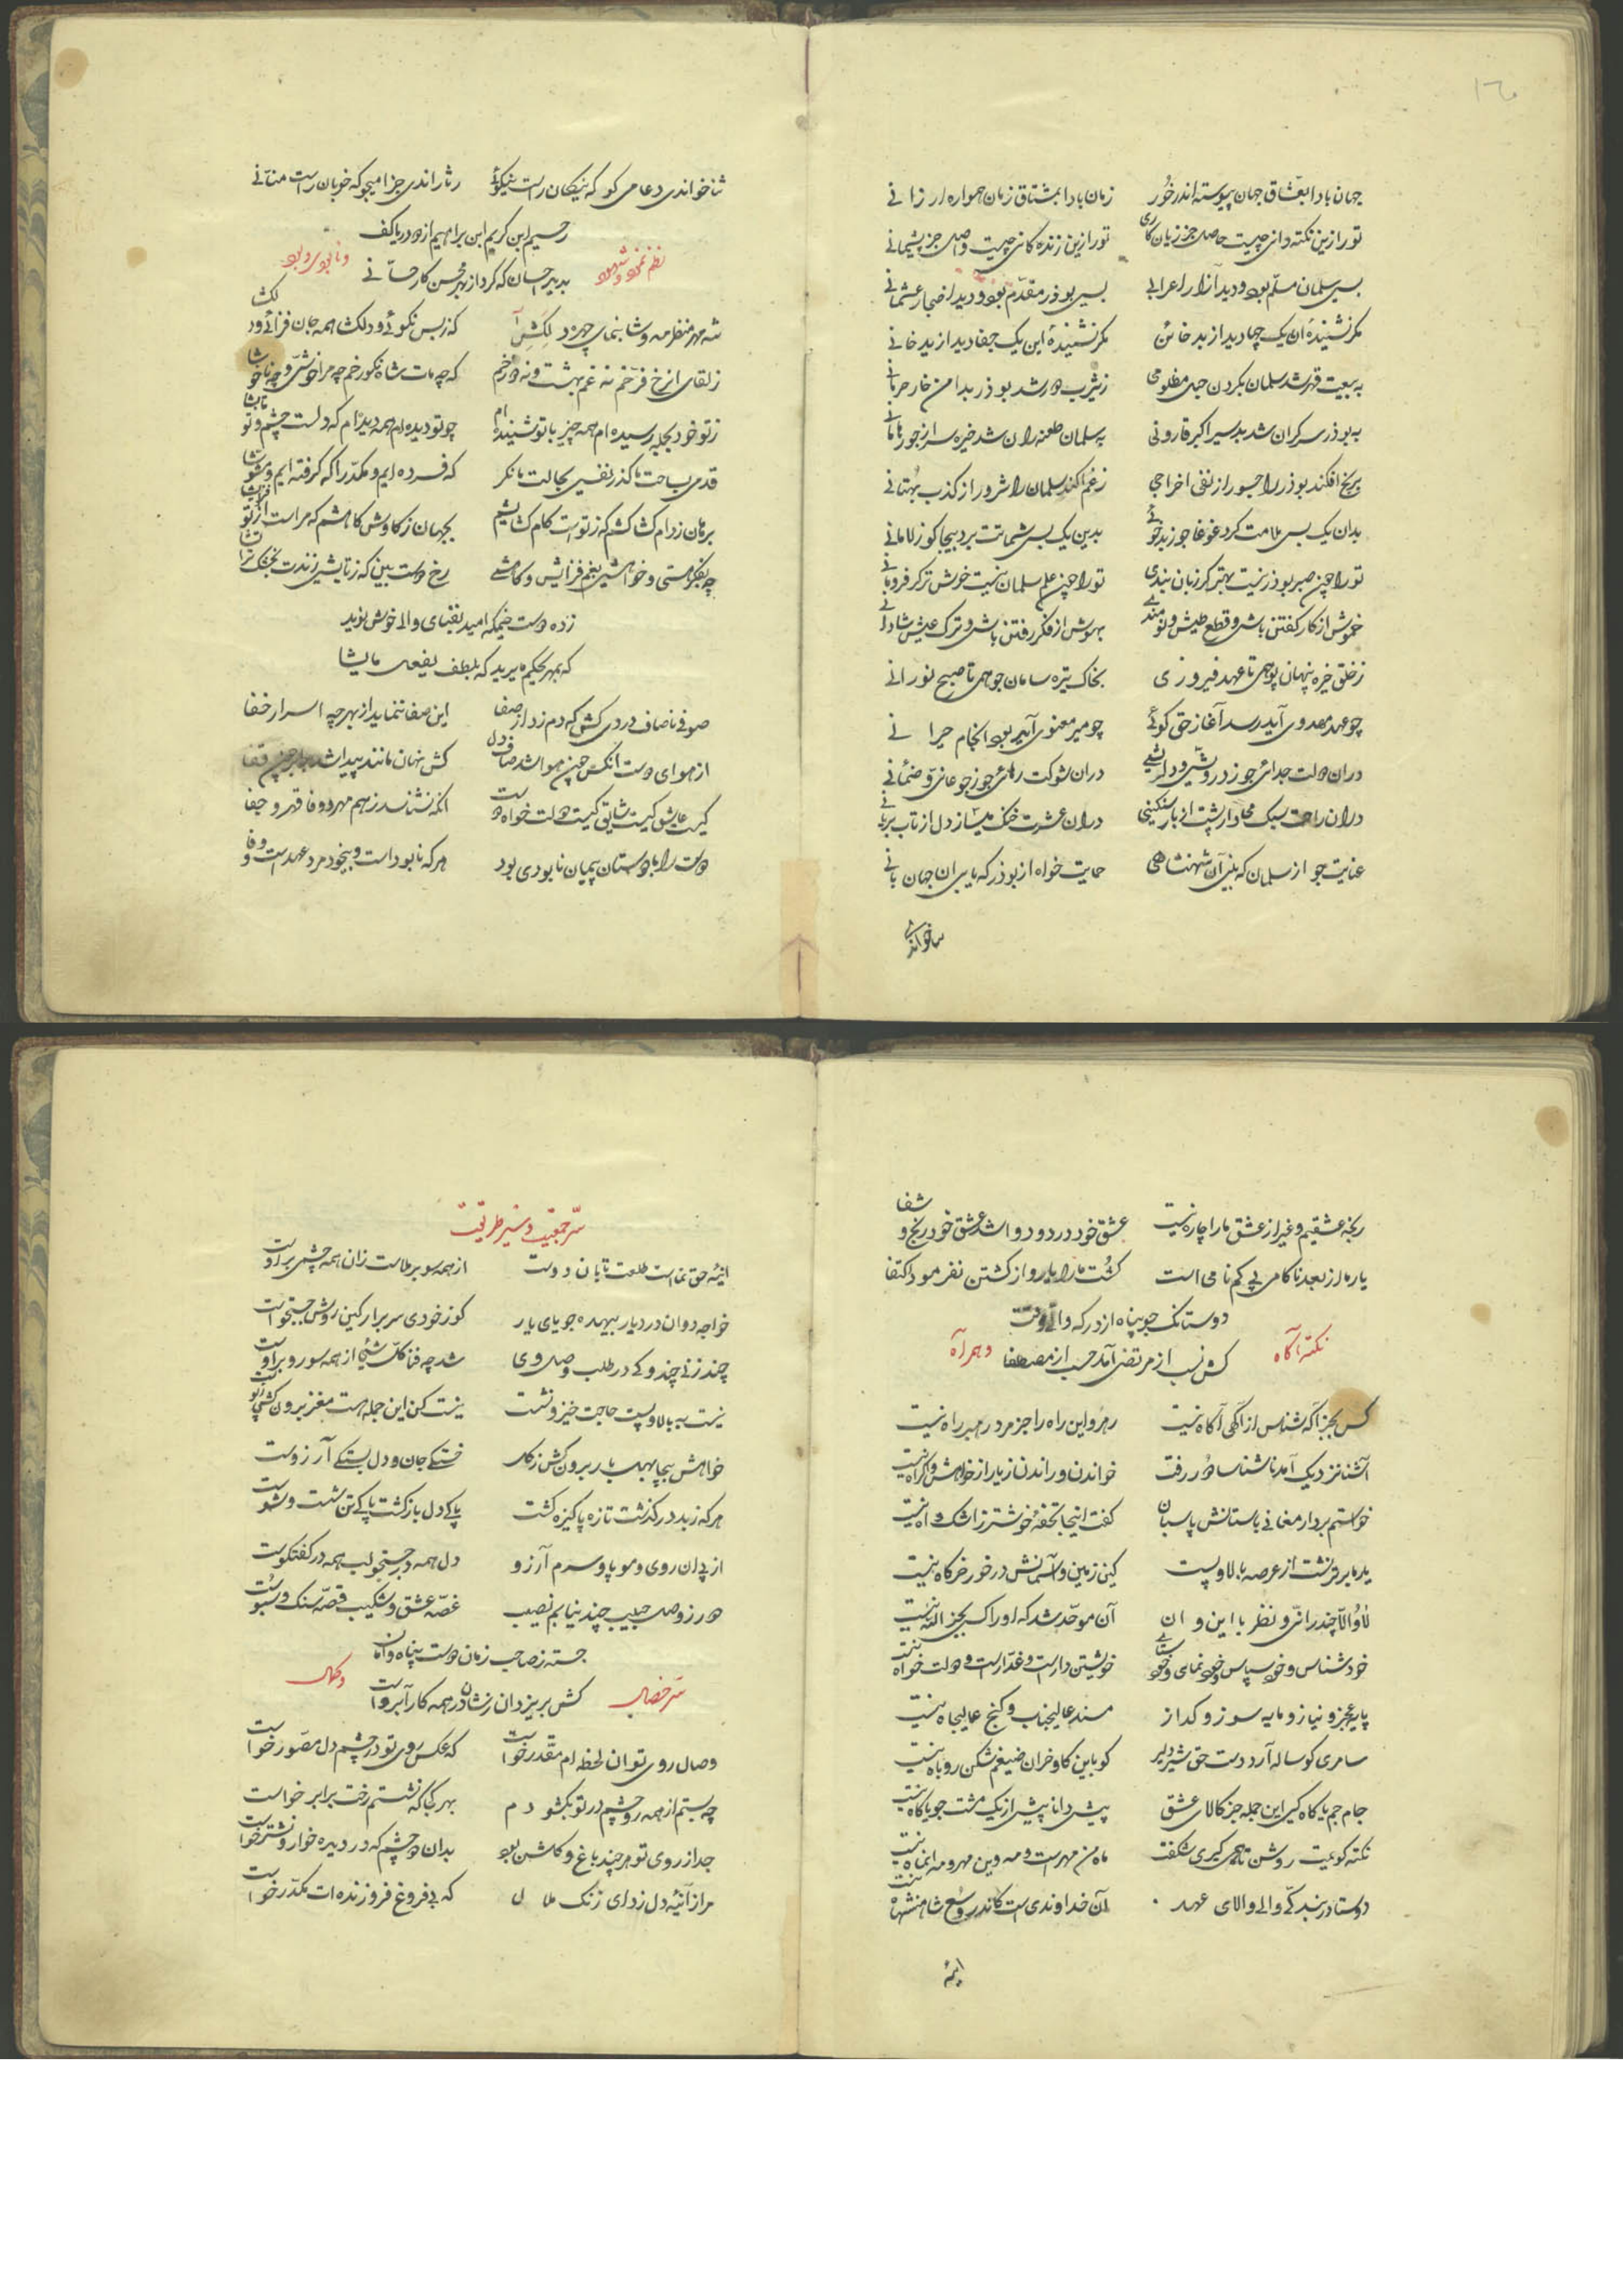 جهان بادا بعشاق جهان پیوسته اندر خور زمان بادا بمشتاق زمان همواره ارزانی
تو را زین نکته دانی چیست حاصل جز زیان کاری تو را زین زنده کانی چیست واصل جز پشیمانی
بسی سلمان مسلّم بود و دید آزار اعرابی بسی بوذر مقدّم بود و دید اضجار عثمانی
مکر نشنیدهٔ ان یک چها دید از بد خائن مکر نشنیدهٔ این یک جفا دید از بد خانی
به بیعت قهر شد سلمان بکردن حبل مظلومی زیثرب دور شد بوذر بدامن خار حرمانی
به بوذر سرکران شد بد سیر اکبر قارونی به سلمان طعنه ران شد خیره سر از جور هامانی
برنج افکند بوذر را جسور از نفی اخراجی زغم اکند سلمان را شرور از کذب بهتانی
بدان یک بس ملامت کرد غوغا جو ز بدخوئی بدین یک بس شماتت برد بیجا کو ز لامانی
تو را چون صبر بوذر نیست بهتر کر زبان بندی تو را چون علم سلمان نیست خوش تر کر فرومانی
خموش از کار کفتن باش و قطع طیش و نومندی بهوش از فکر رفتن باش و ترک عیش شادانی
ز خلق خیره پنهان پوی تا عهد فیروزی بخاک تیره سامان جوی تا صبح نورانی
چو عهد مهدوی آید رسد آغاز حق کوئی چو میر معنوی آید بود انجام حیرانی
دران دولت جدائی جو ز درویشی و دلریشی دران شوکت رهائی جو ز جوعانی و ضمئانی
دران راحت سبک میدار پشت از بار سنکینی دران عشرت خنک میساز دل از تاب برنانی
عنایت جو از سلمان که بینی آن شهنشاهی حمایت خواه از بوذر که یابی ان جهان بانی
ثنا خواندی
ثنا خواندی دعا می کو که نیکان راست نیکوئی رثا راندی جزا میجو که خوبان راست منّانی
رحیم ابن کریم ابن براهیم از دو دریا کف
نظم نمود و شهود و نابود و بود
بدید احسان که کرد از بهر محسن کار حسّانی
شه مهر منظر مه وشا بنمای چهره دلکش آ که ز بس نکوئی و دلکشا همه جان فزائی و دلکشا
ز لقای ان رخ فرّخم نه غم بهشت و نه دوزخم که چه مات شاه نکو رخم چه مرا خوشی و چه ناخوشا
ز تو خود بجمله رسیده ام همه چیز با تو شنیده ام چو تو دیده ام همه دیده ام که دلست چشم و تو تابشا
قدمی بساحت ما کذر نفسی بحالت ما نکر که فسرده ایم و مکدّرا که کرفته ایم و مشوّشا
برهان ز دام کشا کشم که ز تو است کام کشایشم بجهان ز کاوش کاهشم که مراست از تو فزایشا
چه بفکر هستی و خواهشی بغم فزایش و کاهشی رخ دوست بین که ز تابشی زندت بخشک تر آتشا
زده دوست خیمکه امید بفنای والی خوش نوید
که بمهر یحکم ما یرید که بلطف یفعل ما یشا
صوفی ناصاف دردی کش که دم زد از صفا این صفا ننماید از بهر چه اسرار خفا
از هوای دوست انکس چون هوا شد صاف دل کش نهان مانند پیدا شد بدل چون قفا
کیست عاشق کیست شایق کیست دولت خواه دوست انکه نشناسد ز هم مهر و وفا قهر و جفا
دوست را با دوستان پیمان نابودی بود هر که نابود است و بیخود مرد عهدست و وفا
رنجه عشقیم و غیر از عشق ما را چاره نیست عشق خود درد و دوا شد عشق خود رنج و شفا
یار ما از بعد ناکامی پی کم نامی است کشت ما را یار و از کشتن نفرمود اکتفا
دوستا نک جو پناه از درکه والی وقت
نکته آکاه و همراه
کش نسب از مرتضی آمد حسب از مصطفا
کس بجز آکه شناس از آکهی آکاه نیست رهرو این راه را جز مرد رهبر راه نیست
آشنا نزدیک آمد ناشناسا دور رفت خواندن و راندن ز یار از خواهش و اکراه نیست
خواستم بردار مغانی باستانش پاسبان کفت اینجا تحفهٔ خوشتر ز اشک و آه نیست
یار ما برتر نشست از عرصه بالا و پست کین زمین و آسمانش در خور خرکاه نیست
لا و الّا چند رانی و نظر با این و ان آن موحّد شد که او را کس بجز الله نیست
خود شناس و خود سپاس و خود نمای و خود ستای خویشتن دارست و غدّارست و دولت خواه نیست
پایه عجز و نیاز و مایه سوز و کداز مسند عالیجناب و کنج عالیجاه نیست
سامری کوساله آرد دست حق شیر دلیر کو باین کاو خران ضیغم شکن روباه نیست
جام جم یا کاه کیر این جمله جز کالای عشق پیش دانا پیش از یک مشت جو یا کاه نیست
نکته کوئیت روشن تا چه می کیری شکفت ماه من مهرست و مه وین مهر و مه انماه نیست
دوستا در بند کی والی والای عهد آن خداوندی است کاندر وسع شاهنشاه نیست
اینه
سرّ جمعیت و سیر طریقت
اینهٔ حق نماست طلعت تابان دوست از همه سو بر ملاست زان همه چشمی بر اوست
خواجه دوان در دیار بیهده جویای یار کو ز خودی سر برار کین روش جستجوست
چند زنی چند و کی در طلب وصل وی شد چه فنا کلّ شیئ از همه سو رو بر اوست
نیست به بالا و پست حاجت خیز و نشست نیست کن این جمله هست مغز برون کش ز پوست
خواهش بیجا بهل بار برون کش ز کل خستکی جان و دل بستکی آرزوست
هر که ز بد در کذشت تازه و پاکیزه کشت پاکی دل بازکشت پاکی تن شست و شوست
از پی دان روی و مو پا و سرم آرزو دل همه در جستجو لب همه در کفتکوست
دور ز وصل حبیب چند نیابم نصیب غصّه عشق و شکیب قصّه سنک و سبوست
جسته ز صاحب زمان دوست پناه و امان
سرّ خصال و کمال
کش بر یزدان زشان در همه کار آبروست
وصال روی تو ان لحظه ام مقدّر خواست که عکس روی تو در چشم دل مصوّر خواست
چه بستم از همه رو چشم در تو بکشودم بهر کجا که نشستم رخت برابر خواست
جدا ز روی تو هر چند باغ و کلشن بود بدان دو چشم که در دیده خوار و نشتر خواست
مرا ز آئینه دل زدای زنک ملال که بی فروغ فروزنده ات مکدّر خواست